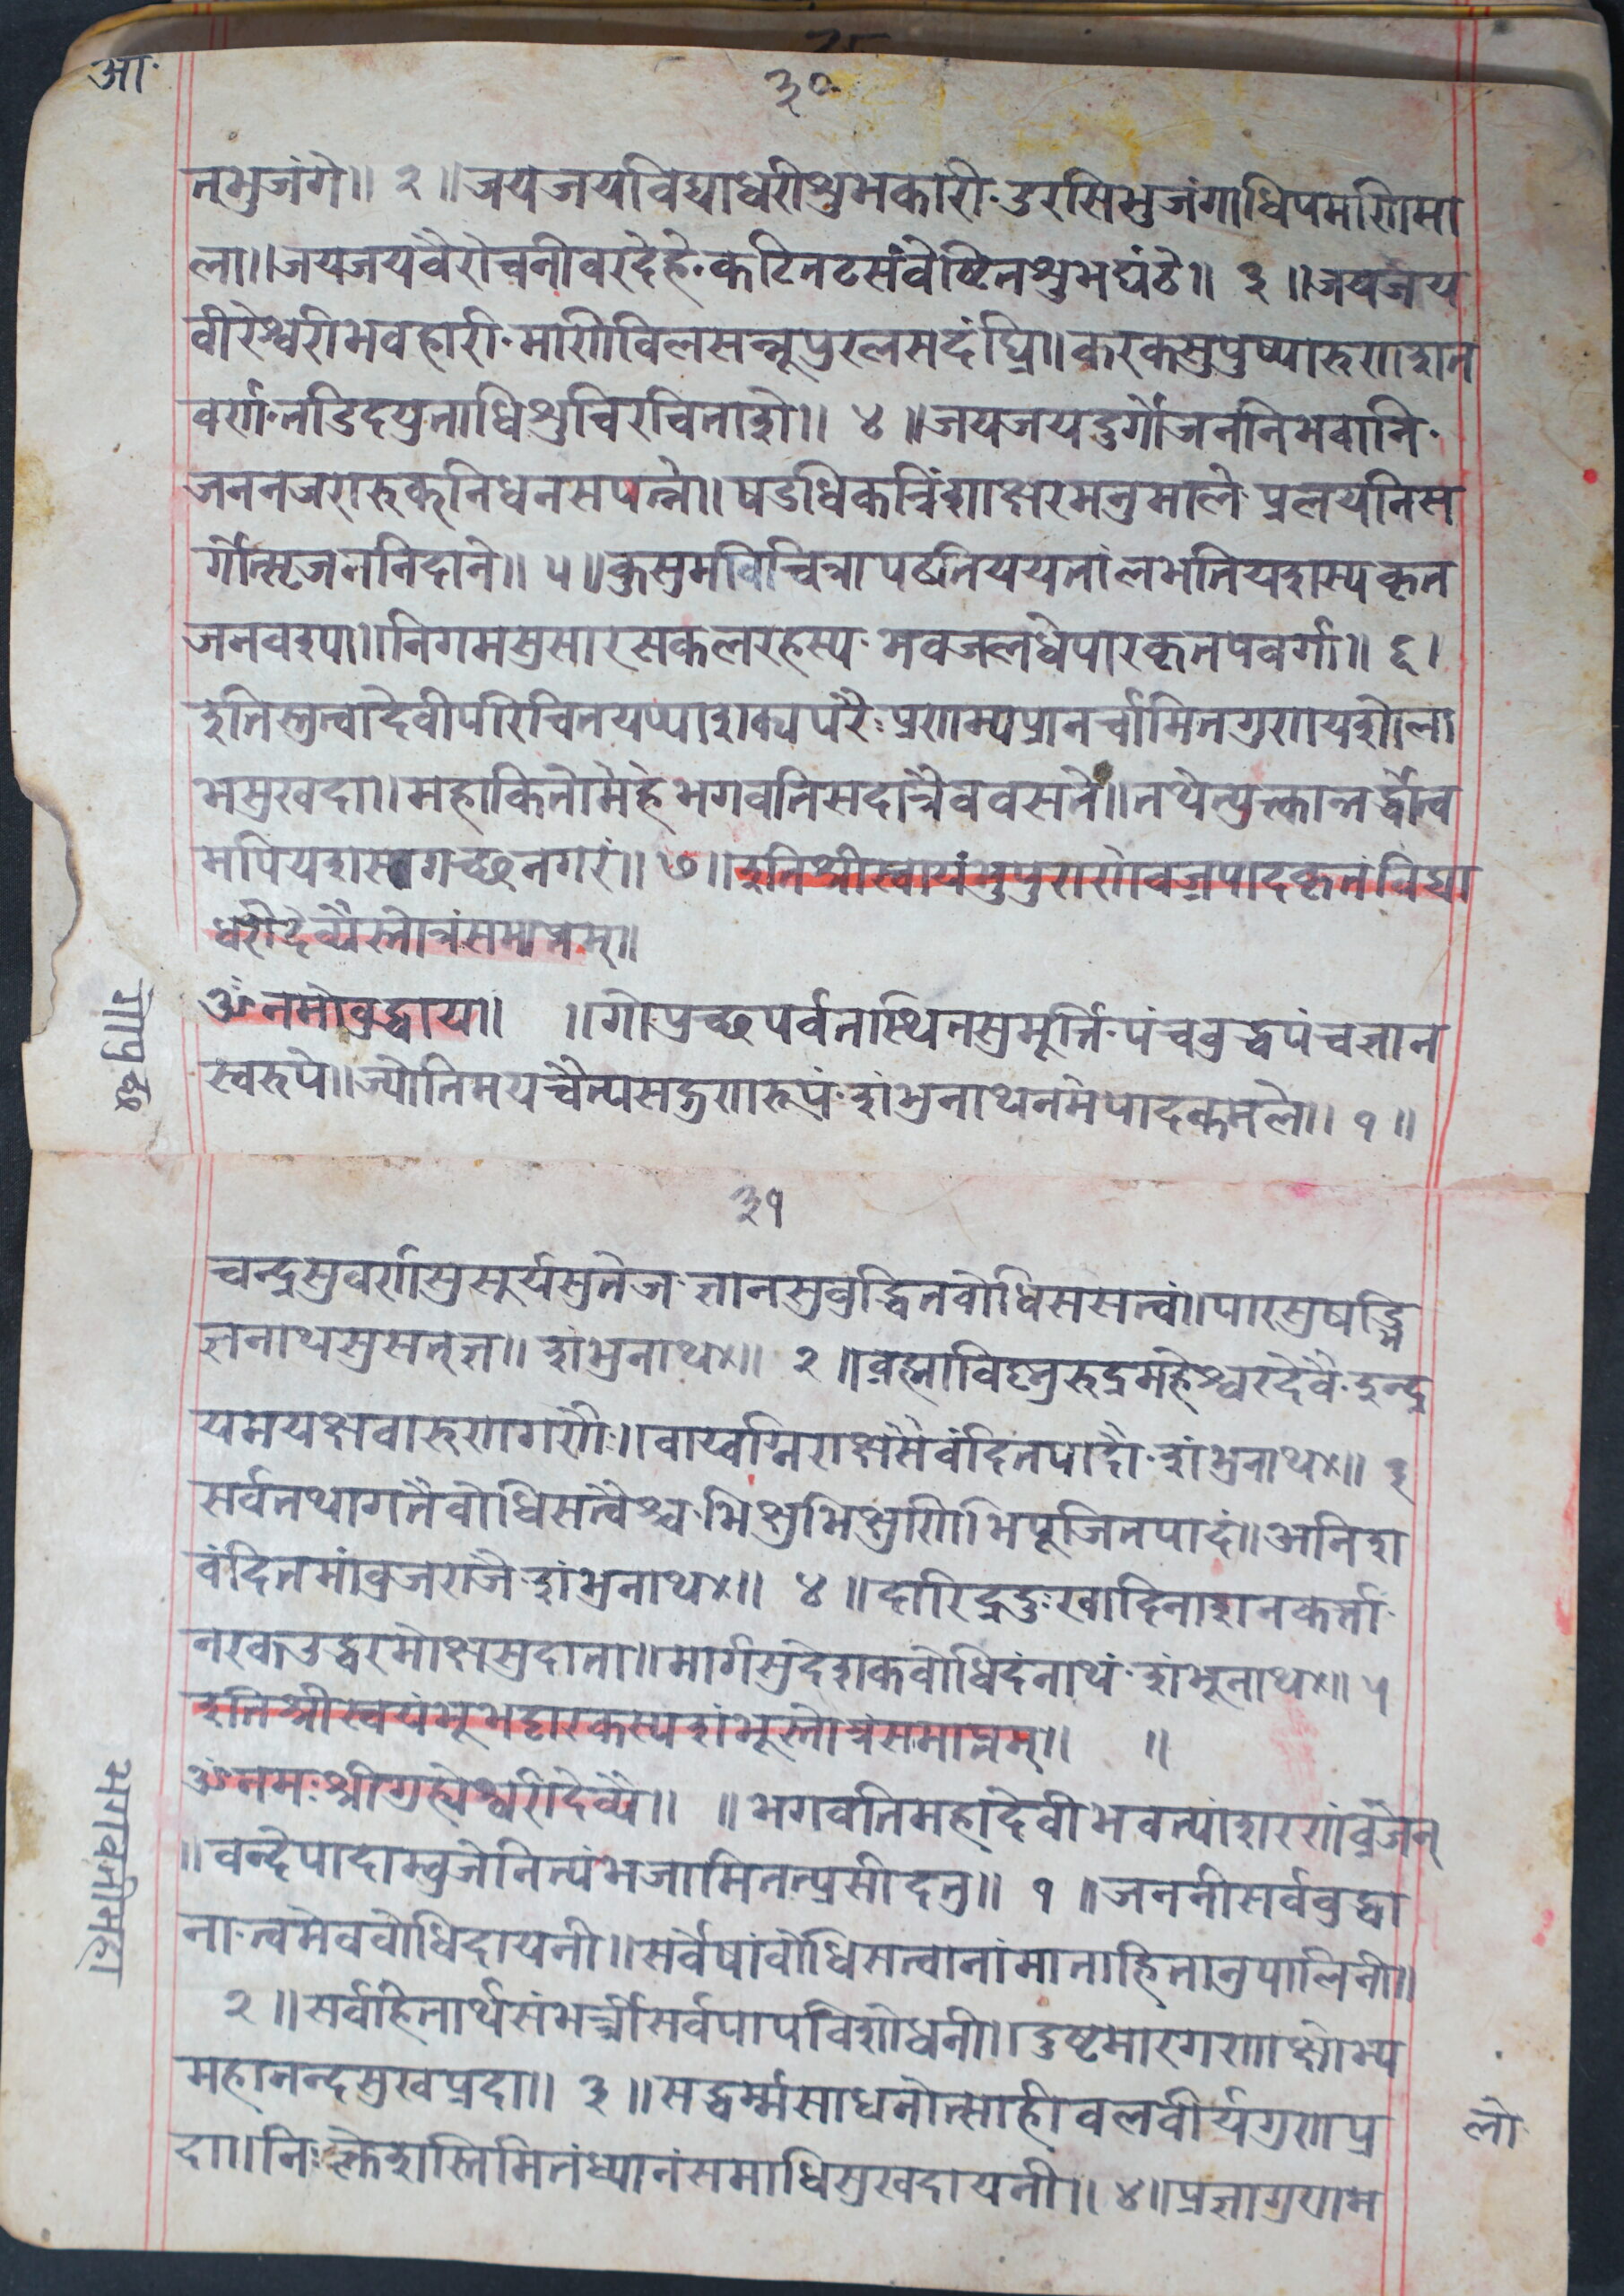 आ॰
३०
तभुजंगे॥ २ ॥जयजयविद्याधरीशुभकारी॰उरसिभुजंगाधिपमणिमा
ला॥जयजयवैरोचनीवरदेहे॰कटितटसंवेष्टितशुभघंठे॥ ३ ॥जयजय
वीरेश्वरीभवहारी॰मणिविलसन्नूपुरलसदंघ्रि॥करकसुपुष्पारुणशत
वर्ण॰तडिदयुताधिशुचिरचिताशे॥ ४ ॥जयजयदुर्गेजननिभवानि॰
जननजरारुक्निधनसपत्ने॥षडधिकत्रिंशाक्षरमनुमाले॰प्रलयनिस
र्गोत्सृजननिदाने॥ ५ ॥कुसुमविचित्रापठतिययतांलभतियशस्यकृत
जनवश्य॥निगमसुसारसकलरहस्य॰भवजलधेपारकृतपवर्गा॥ ६।
इतिस्तुत्वादेवीपरिचितयप्याशक्यपरैःप्रणम्यप्रानर्चामितगुणयशोला
भसुखदा॥महाकितोमेहेभगवतिसदात्रैववसते॥तथेत्युक्तान्तर्द्धोत्व
मपियशस्वगच्छनगरं॥ ७॥इतिश्रीस्वायंभुपुराणेवज्रपादकृतंविद्या
धरीदेव्यैस्तोत्रंसमाप्तम्॥
ॐनमोबुद्धाय॥ ॥गोपुच्छपर्वतास्थितसुमूर्त्ति॰पंचबुद्धपंचज्ञान
स्वरूपे॥ज्योतिमयचैत्यसद्गुणरूपं॰शंभुनाथनमेपादकमले॥ १ ॥
गोपुछ
३१
चन्द्रसुवर्णसुसूर्यसुतेज॰ज्ञानसुबुद्धितबोधिससत्वं॥पारसुषड्भि
ज्ञनाथसुसत्ज्ञ॥ शंभुनाथ॰॥ २ ॥ब्रह्माविष्नुरुद्रमहेश्वरदेवै॰इन्द्र
यमयक्षवारुणगणैः॥वाय्वग्निराक्षसैवंदितपादौ॰शंभुनाथ॰॥ ३
सर्वतथागतैबोधिसत्वैश्च॰भिक्षुभिक्षुणिभिपूजितपादं॥अनिश
वंदितमांवुजराजै॰शंभुनाथ॰॥ ४ ॥दारिद्रदुःखादिनाशनकर्ता॰
नरकउद्धरमोक्षसुदाता॥मार्गसुदेशकबोधिदंनाथं॰शंभूनाथ॰॥ ५
इतिश्रीस्वयंभूभट्टारकस्यशंभूस्तोत्रंसमाप्तम्॥ ॥
ॐनमःश्रीगुह्येश्वरीदेव्यै॥ ॥भगवतिमहादेवीभवत्यांशरणंव्रजेत्
॥वन्देपादाम्बुजेनित्यंभजामितत्प्रसीदतु॥ १ ॥जननीसर्वबुद्धा
ना॰त्वमेवबोधिदायनी॥सर्वेषांबोधिसत्वानांमाताहितानुपालिनी॥
२ ॥सर्वहितार्थसंभर्त्रीसर्वपापविशोधनी॥दुष्टमारगणाक्षोभ्य
महानन्दसुखप्रदा॥ ३ ॥सद्धर्म्मसाधनोत्साहीबलवीर्यगुणप्र
दा॥निःक्लेशस्तिमितंध्यानंसमाधिसुखदायनी॥ ४॥प्रज्ञागुणम
भगवतीमहा
लो